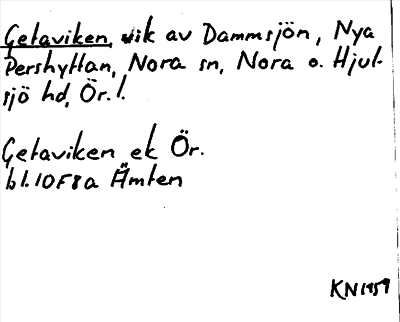 Getaviken, vik av Dammsjön, Nya
Pershyttan, Nora sn, Nora o. Hjul-
sjö hd, Ör. l.
Getaviken ek Ör.
bl. 10F8a Åmten
KN1959